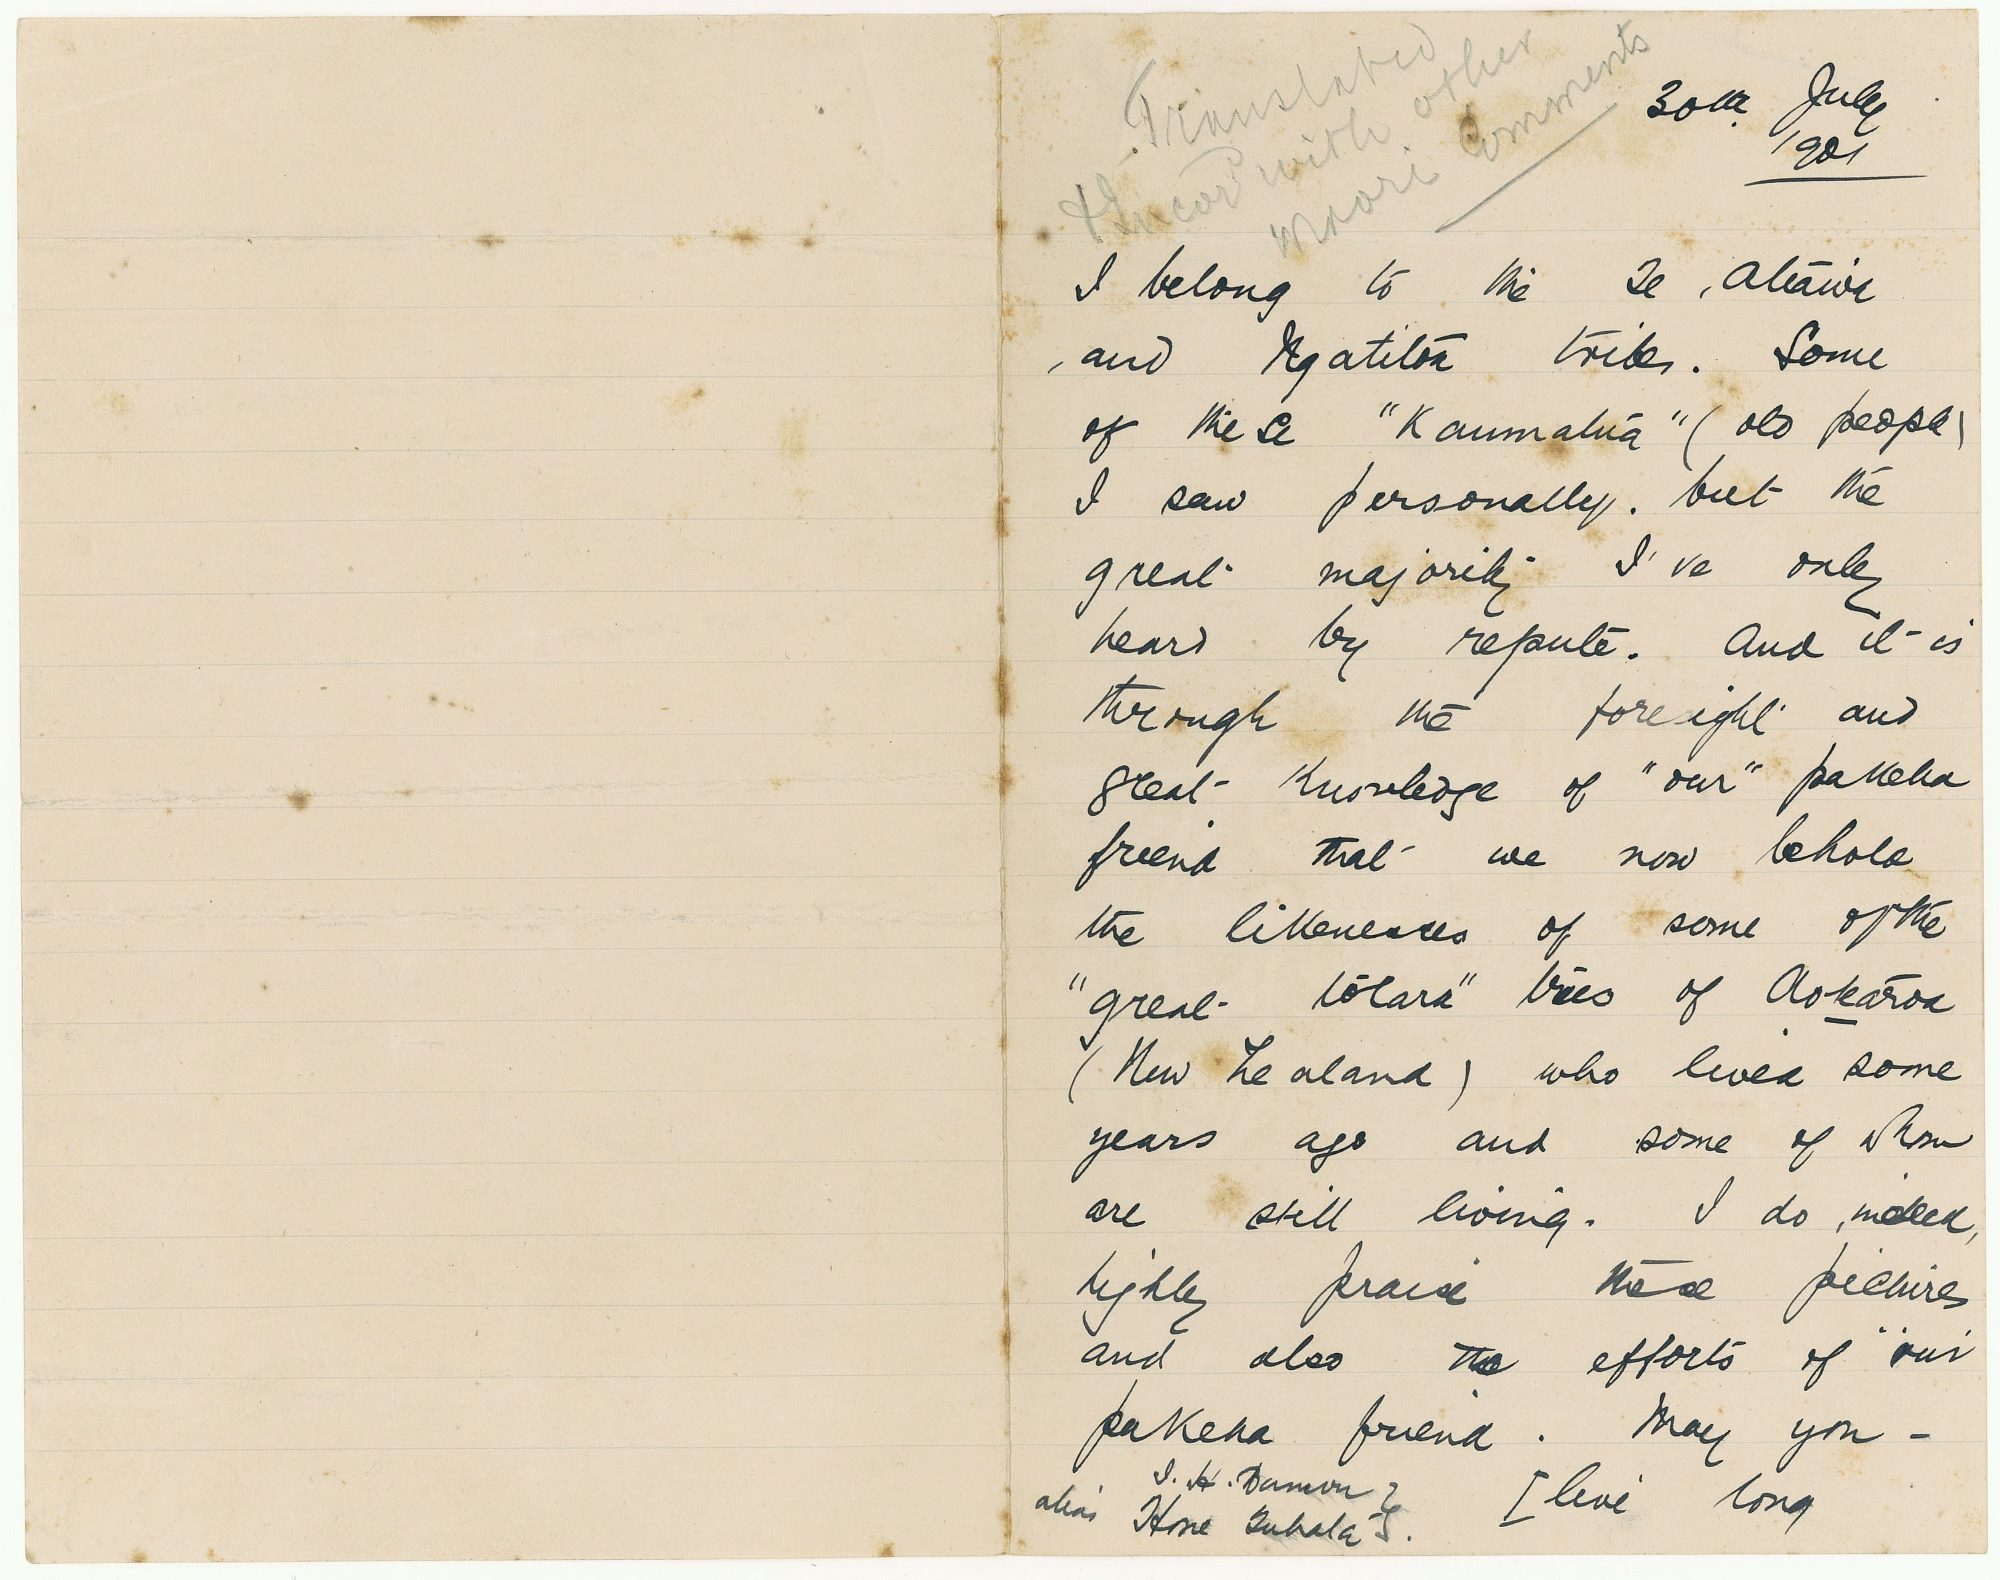 Translated
& Incor^d with other
Maori Comments
30th July
1901
I belong to the Te Atiawa
and Ngatitoa tribes. Some
of these "Kaumatua" (old people)
I saw personally. but the
great majority I've only
heard by repute. And it is
through the foresight and
great knowledge of "our" pakeha
friend that we now behold
the likenesses of some of the
"great totara" trees of Aotearoa
(New Zealand) who lived some
years ago and some of whom
are still living. I do, indeed,
highly praise these pictures
and also the efforts of "our"
pakeha friend. May you -
[live long
alias Hone Tuhata }.